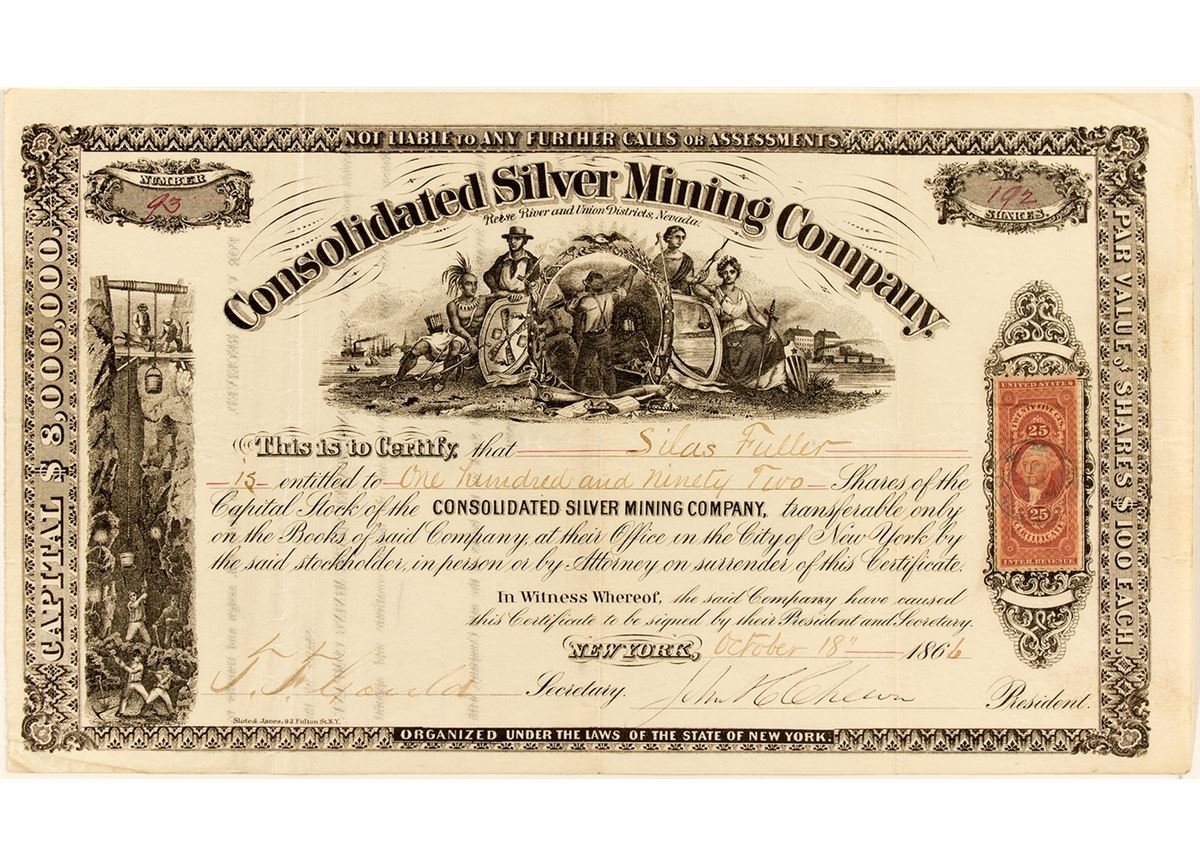 NOT LIABLE TO ANY FURTHER CALLS OR ASSESSMENTS.
NUMBER
93
192
SHARES
Consolidated Silver Mining Company.
Reese River and Union Districts, Nevada.
CAPITAL $ 8,000,000.
PAR VALUE, of SHARES $ 100 EACH.
This is to Certify, that Silas Fuller
is entitled to One hundred and Ninety Two Shares of the
Capital Stock of the CONSOLIDATED SILVER MINING COMPANY, transferable only
on the Books of said Company, at their Office in the City of New York by
the said stockholder, in person or by Attorney on surrender of this Certificate.
In Witness Whereof, the said Company have caused
this Certificate to be signed by their President and Secretary.
NEW YORK, October 18" 1866
Secretary.
President.
UNITED STATES
TWENTY FIVE CTS.
25
25
CERTIFICATE
INTER. REVENUE
Slote & Janes, 93 Fulton St. N.Y.
ORGANIZED UNDER THE LAWS OF THE STATE OF NEW YORK.